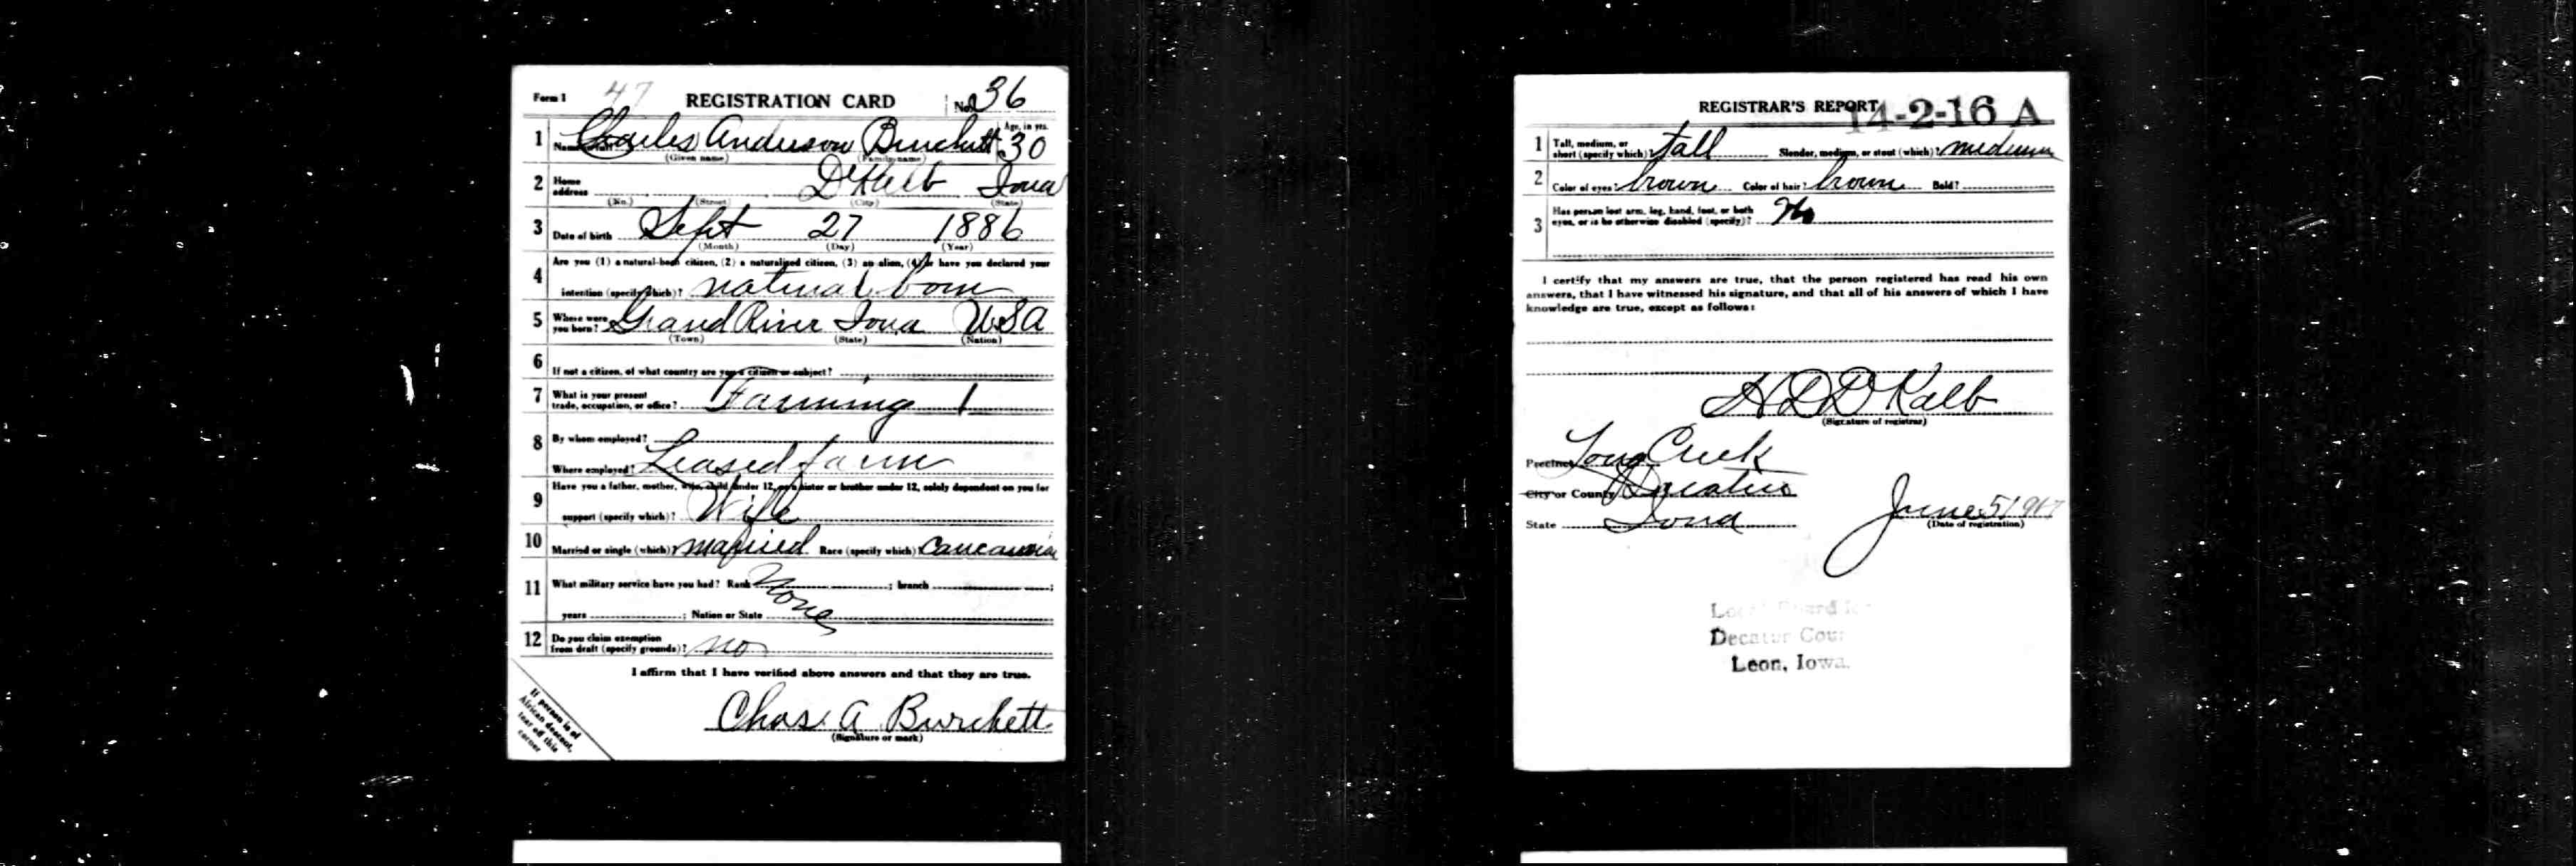 Form 1 47 REGISTRATION CARD No. 36
1 Name in full Charles Anderson Burchett Age, in yrs. 30
(Given name) (Family name)
2 Home address D'Kalb Iowa
(No.) (Street) (City) (State)
3 Date of birth Sept 27 1886
(Month) (Day) (Year)
4 Are you (1) a natural-born citizen, (2) a naturalized citizen, (3) an alien, (4) or have you declared your
intention (specify which)? natural born
5 Where were you born? Grand River Iowa USA
(Town) (State) (Nation)
6 If not a citizen, of what country are you a citizen or subject?
7 What is your present trade, occupation, or office? Farming 1
8 By whom employed?
Where employed? Leased farm
9 Have you a father, mother, wife, child under 12, or a sister or brother under 12, solely dependent on you for
support (specify which)? Wife
10 Married or single (which)? married Race (specify which)? Caucasian
11 What military service have you had? Rank None ; branch ;
years ; Nation or State
12 Do you claim exemption from draft (specify grounds)? no
I affirm that I have verified above answers and that they are true.
Chas. A Burchett
(Signature or mark)
If person is of
African descent,
tear off this
corner
REGISTRAR'S REPORT 14-2-16 A
1 Tall, medium, or short (specify which)? tall Slender, medium, or stout (which)? medium
2 Color of eyes? brown Color of hair? brown Bald?
3 Has person lost arm, leg, hand, foot, or both eyes, or is he otherwise disabled (specify)? No
I certify that my answers are true, that the person registered has read his own
answers, that I have witnessed his signature, and that all of his answers of which I have
knowledge are true, except as follows:
H D D'Kalb
(Signature of registrar)
Precinct Long Creek
City or County Decatur
State Iowa
June 5 1917
(Date of registration)
Local Board for
Decatur Coun
Leon, Iowa.